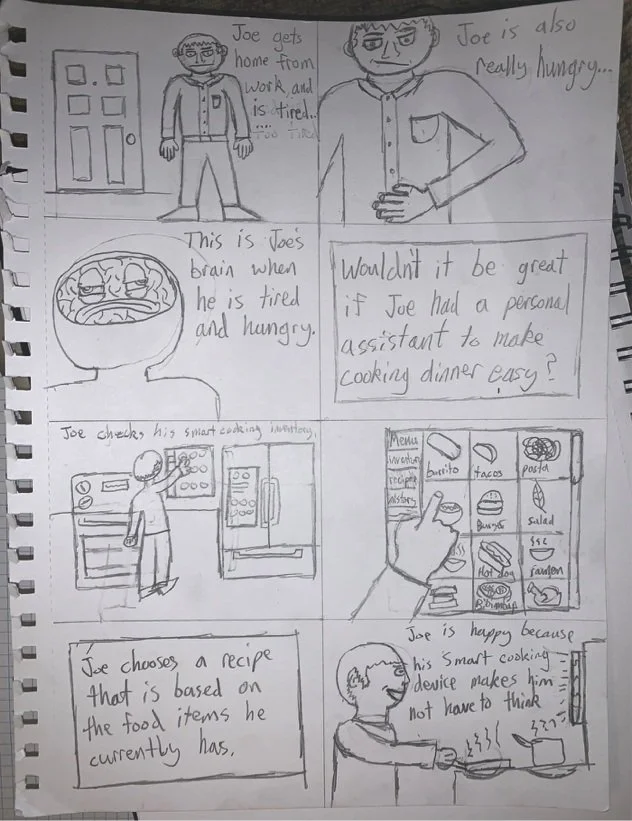 Joe gets
home from
work, and
is tired...
Joe is also
really hungry...
This is Joe's
brain when
he is tired
and hungry.
Wouldn't it be great
if Joe had a personal
assistant to make
cooking dinner easy?
Joe checks his smart cooking inventory.
Menu
inventory
recipes
history
burrito
tacos
pasta
Burger
salad
Hot dog
ramen
Bibimbap
Joe chooses a recipe
that is based on
the food items he
currently has.
Joe is happy because
his smart cooking
device makes him
not have to think